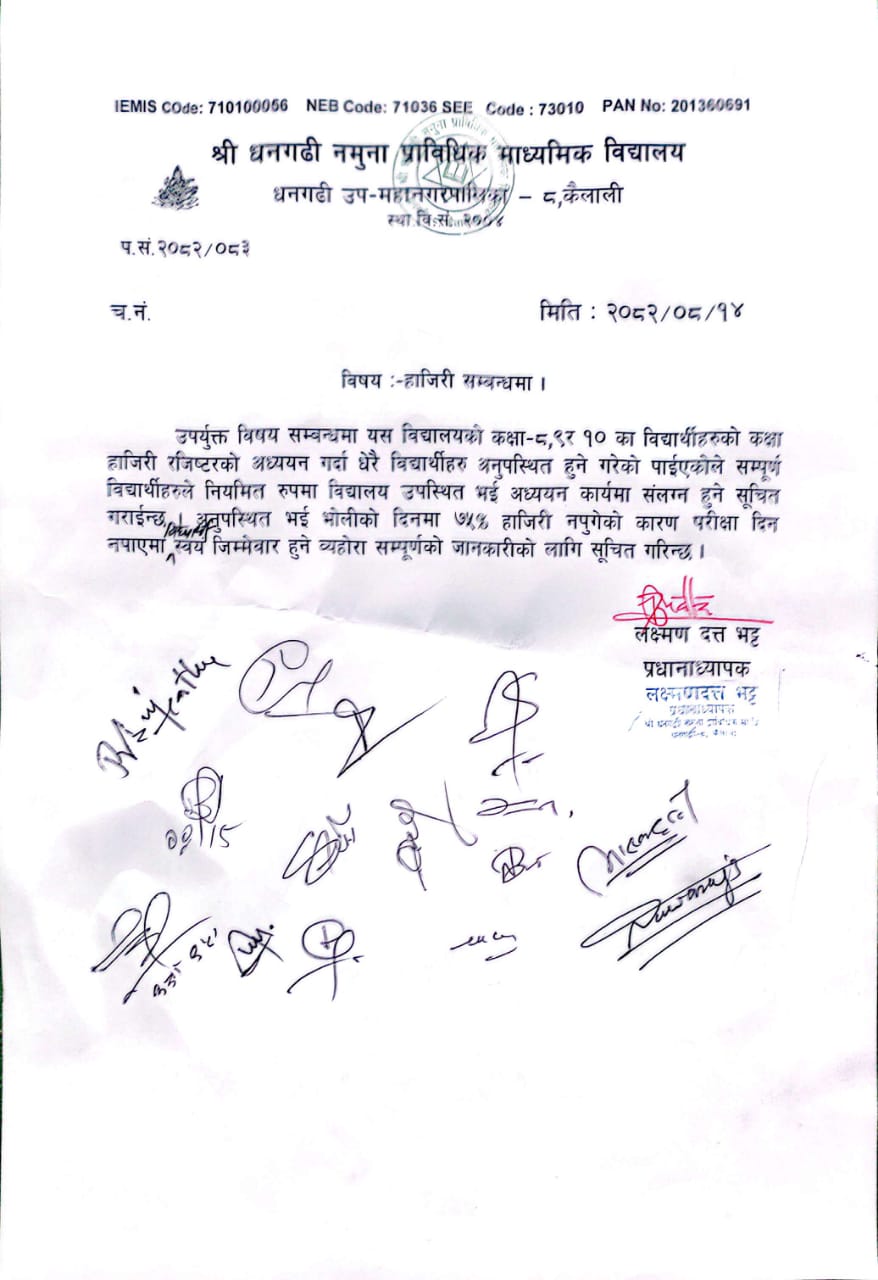 IEMIS COde: 710100056 NEB Code: 71036 SEE Code : 73010 PAN No: 201360691
श्री धनगढी नमुना प्राविधिक माध्यमिक विद्यालय
धनगढी उप-महानगरपालिका – ८,कैलाली
स्था.वि.सं. २००४
प.सं.२०८२/०८३
च.नं.
मिति : २०८२/०८/१४
विषय :-हाजिरी सम्बन्धमा ।
उपर्युक्त विषय सम्बन्धमा यस विद्यालयको कक्षा-८,९र १० का विद्यार्थीहरुको कक्षा
हाजिरी रजिष्टरको अध्ययन गर्दा धेरै विद्यार्थीहरु अनुपस्थित हुने गरेको पाईएकोले सम्पूर्ण
विद्यार्थीहरुले नियमित रुपमा विद्यालय उपस्थित भई अध्ययन कार्यमा संलग्न हुने सूचित
गराईन्छ । अनुपस्थित भई भोलीको दिनमा ७५% हाजिरी नपुगेको कारण परीक्षा दिन
नपाएमा स्वयं जिम्मेवार हुने व्यहोरा सम्पूर्णको जानकारीको लागि सूचित गरिन्छ ।
लक्ष्मण दत्त भट्ट
प्रधानाध्यापक
लक्ष्मणदत्त भट्ट
प्रधानाध्यापक